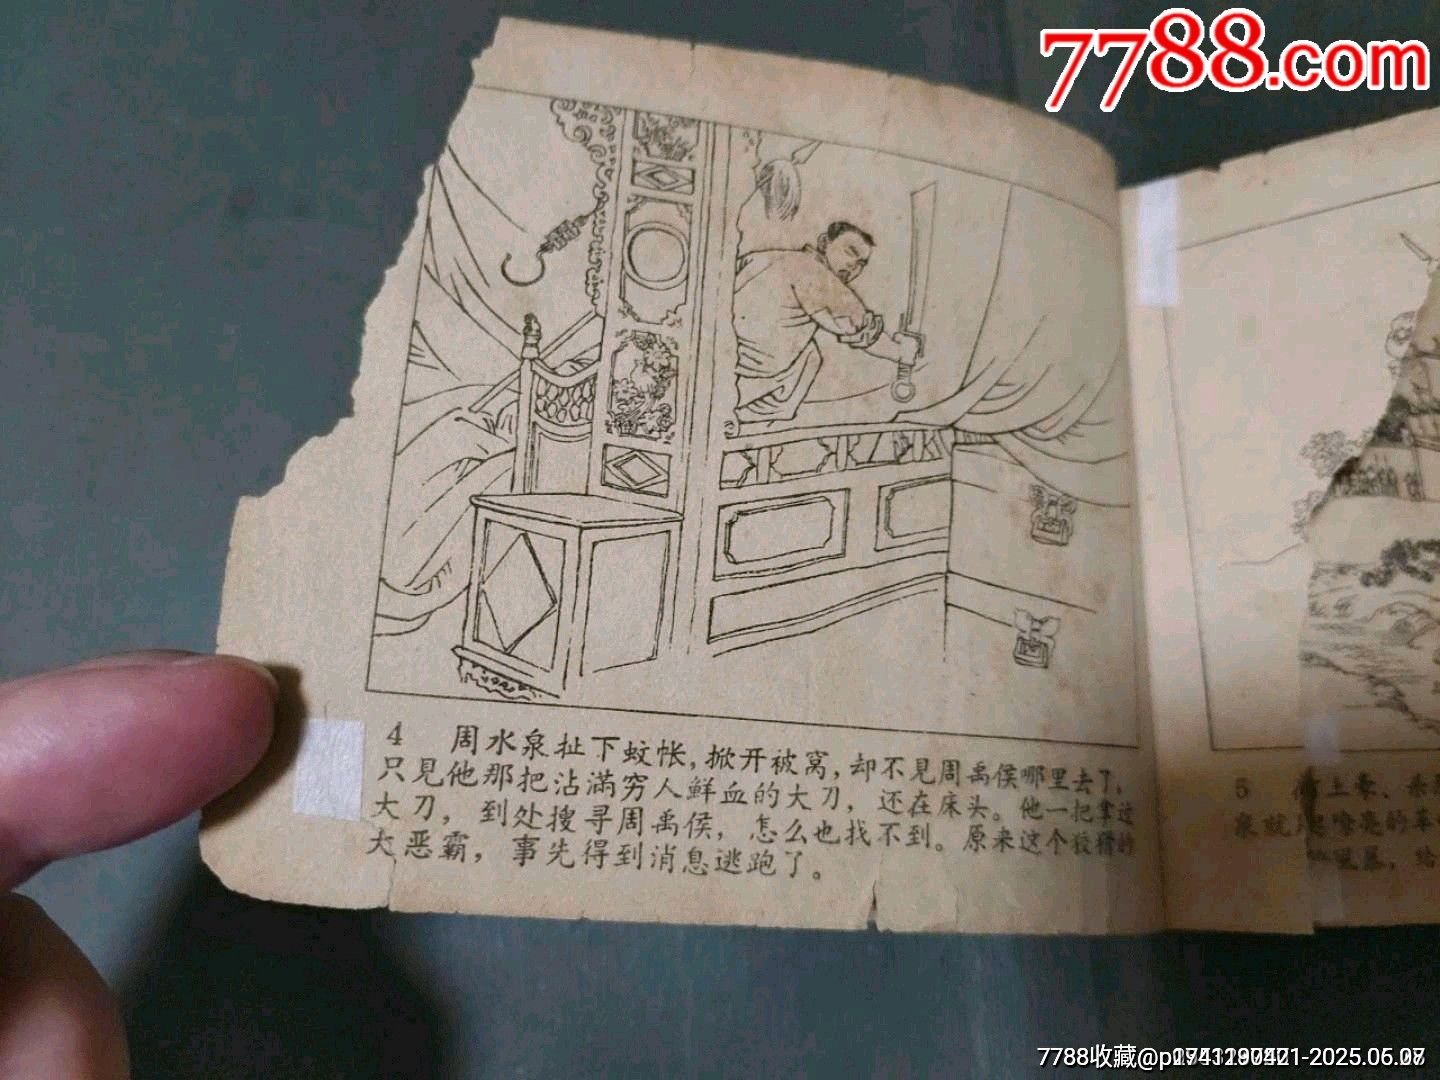 7788.com
4 周水泉扯下蚊帐，掀开被窝，却不見周禹侯哪里去了，
只見他那把沾滿穷人鲜血的大刀，还在床头。他一把拿过
大刀，到处搜寻周禹侯，怎么也找不到。原来这个狡猾的
大恶霸，事先得到消息逃跑了。
5 土豪、
泉就
風暴，给
7788收藏